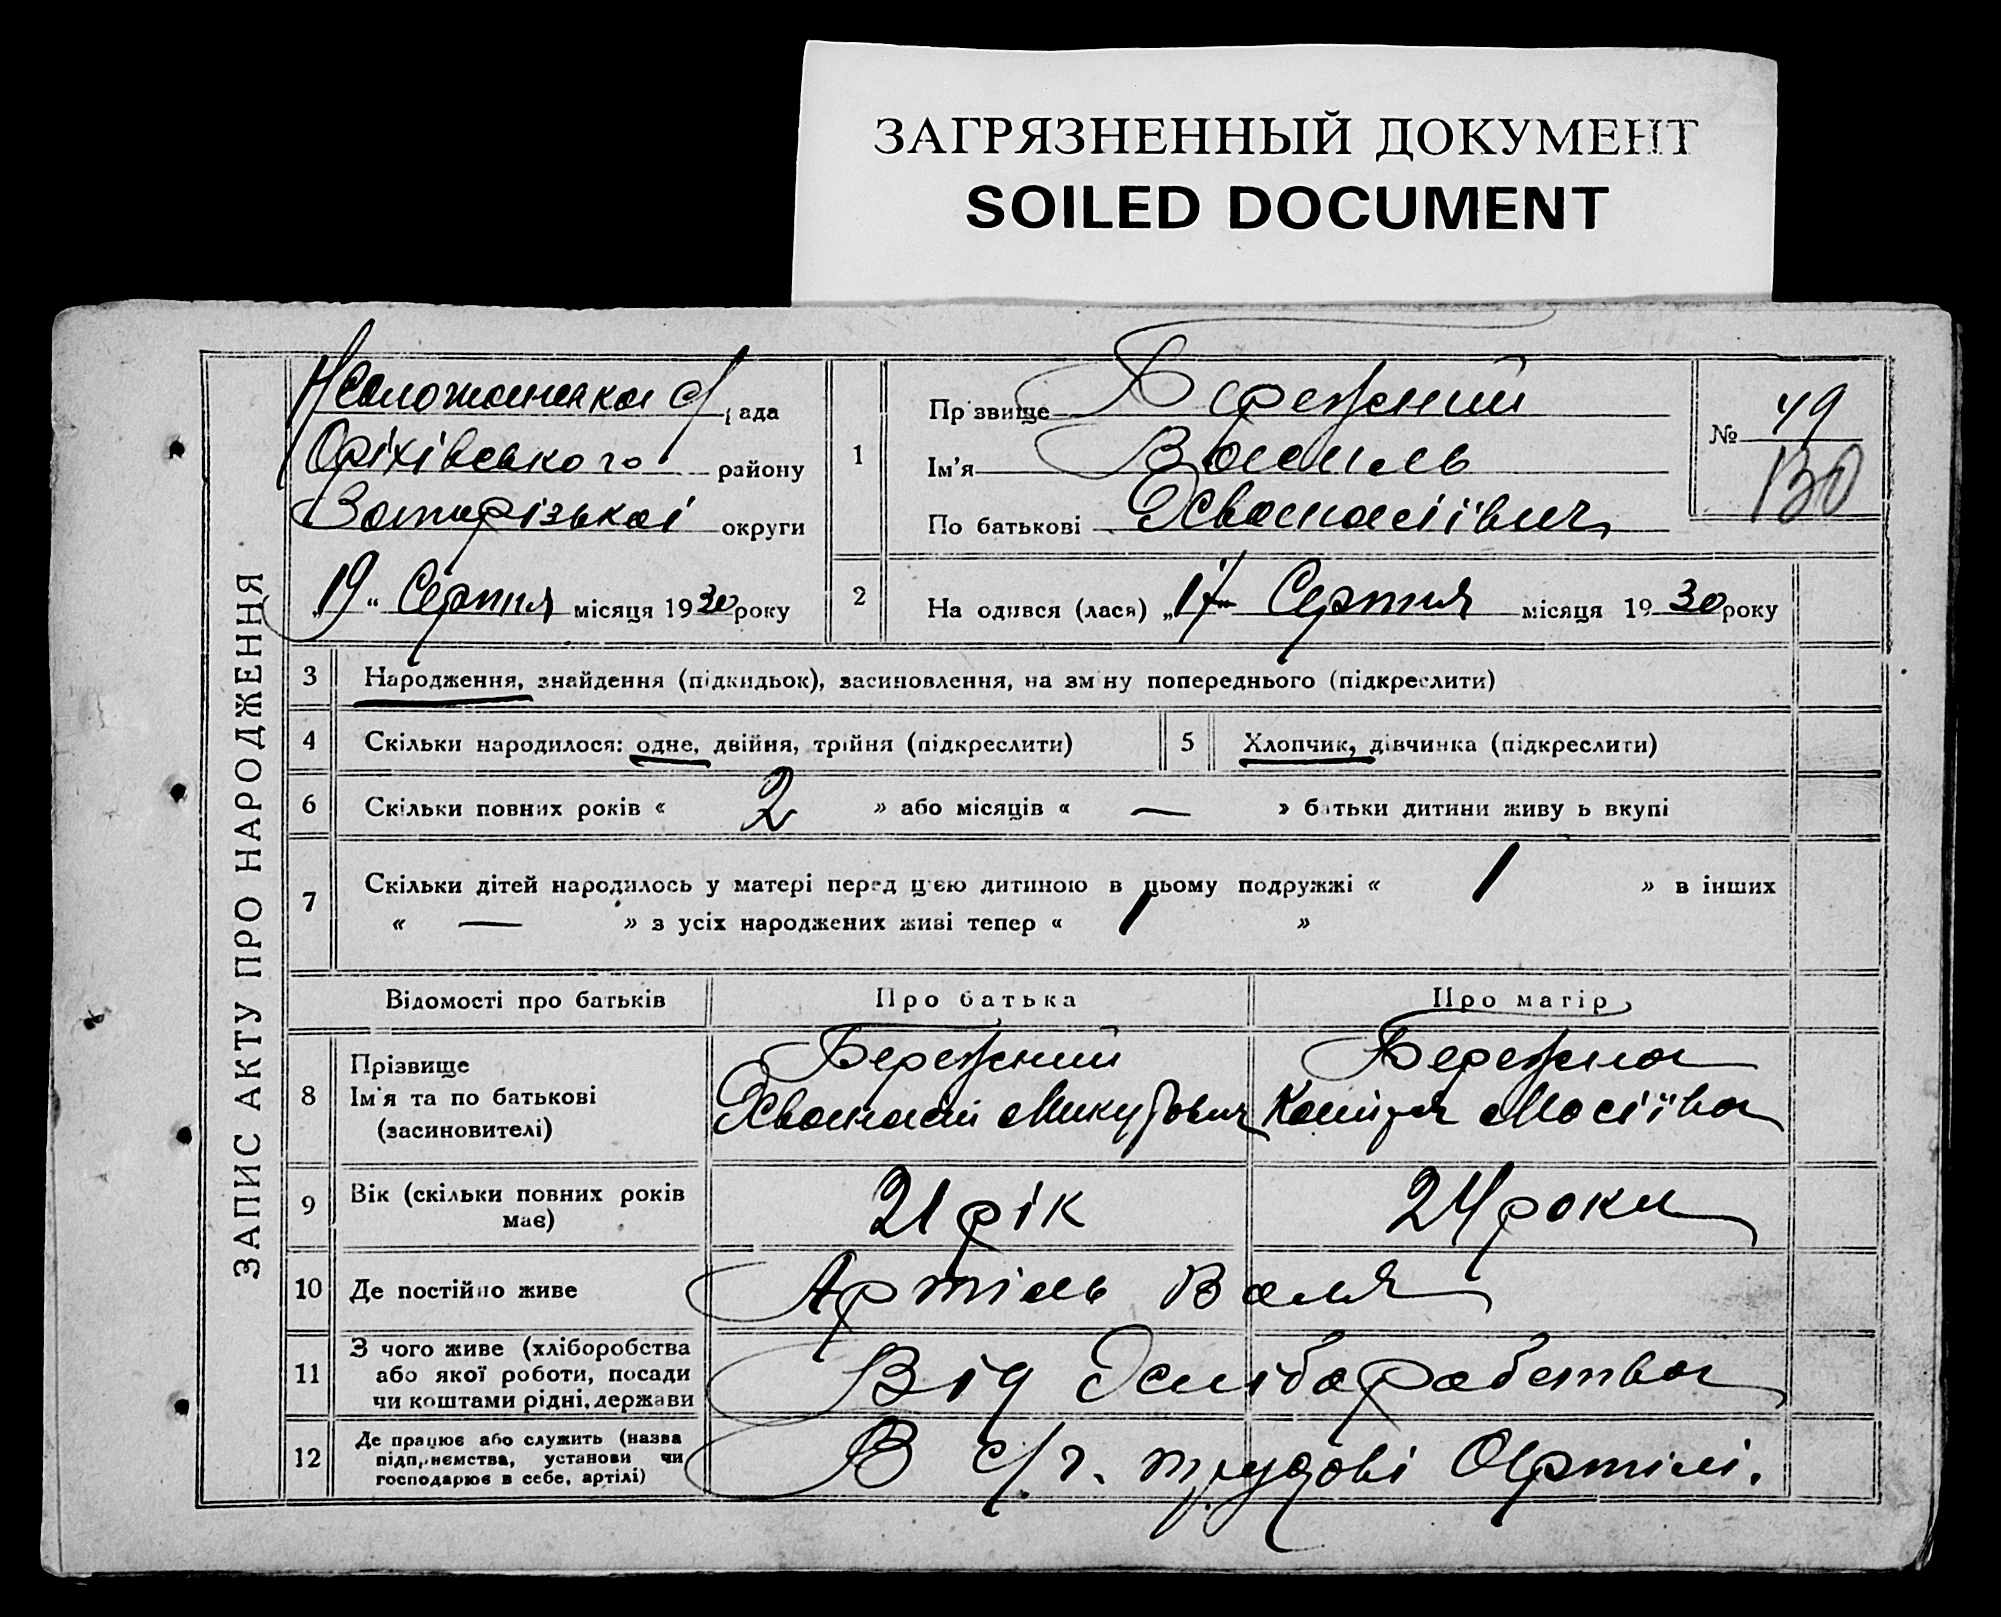 ЗАГРЯЗНЕННЫЙ ДОКУМЕНТ
SOILED DOCUMENT
ЗАПИС АКТУ ПРО НАРОДЖЕННЯ
с/рада
Оріхівського району
Запорізької округи
„19“ Серпня місяця 1930 року
1
Прізвище Бережний
Ім'я Василь
По батькові Хванасіївич
№ 49
130
2
На одився (лася) „17“ Серпня місяця 1930 року
3 Народження, знайдення (підкидьок), засиновлення, на зміну попереднього (підкреслити)
4 Скільки народилося: одне, двійня, трійня (підкреслити)
5 Хлопчик, дівчинка (підкреслити)
6 Скільки повних років « 2 » або місяців « — » батьки дитини живу ь вкупі
7 Скільки дітей народилось у матері перед цією дитиною в цьому подружжі « 1 » в інших
« — » з усіх народжених живі тепер « 1 »
Відомості про батьків
Про батька
Про матір
8
Прізвище
Ім'я та по батькові
(засиновителі)
Бережний
Хванасій
Бережна
Мосіївна
9
Вік (скільки повних років
має)
21 рік
24 роки
10 Де постійно живе
Артіль Воля
11
З чого живе (хліборобства
або якої роботи, посади
чи коштами рідні, держави
Від хліборобства
12
Де працює або служить (назва
підприємства, установи чи
господарює в себе, артілі)
В с/г. трудові Артілі.